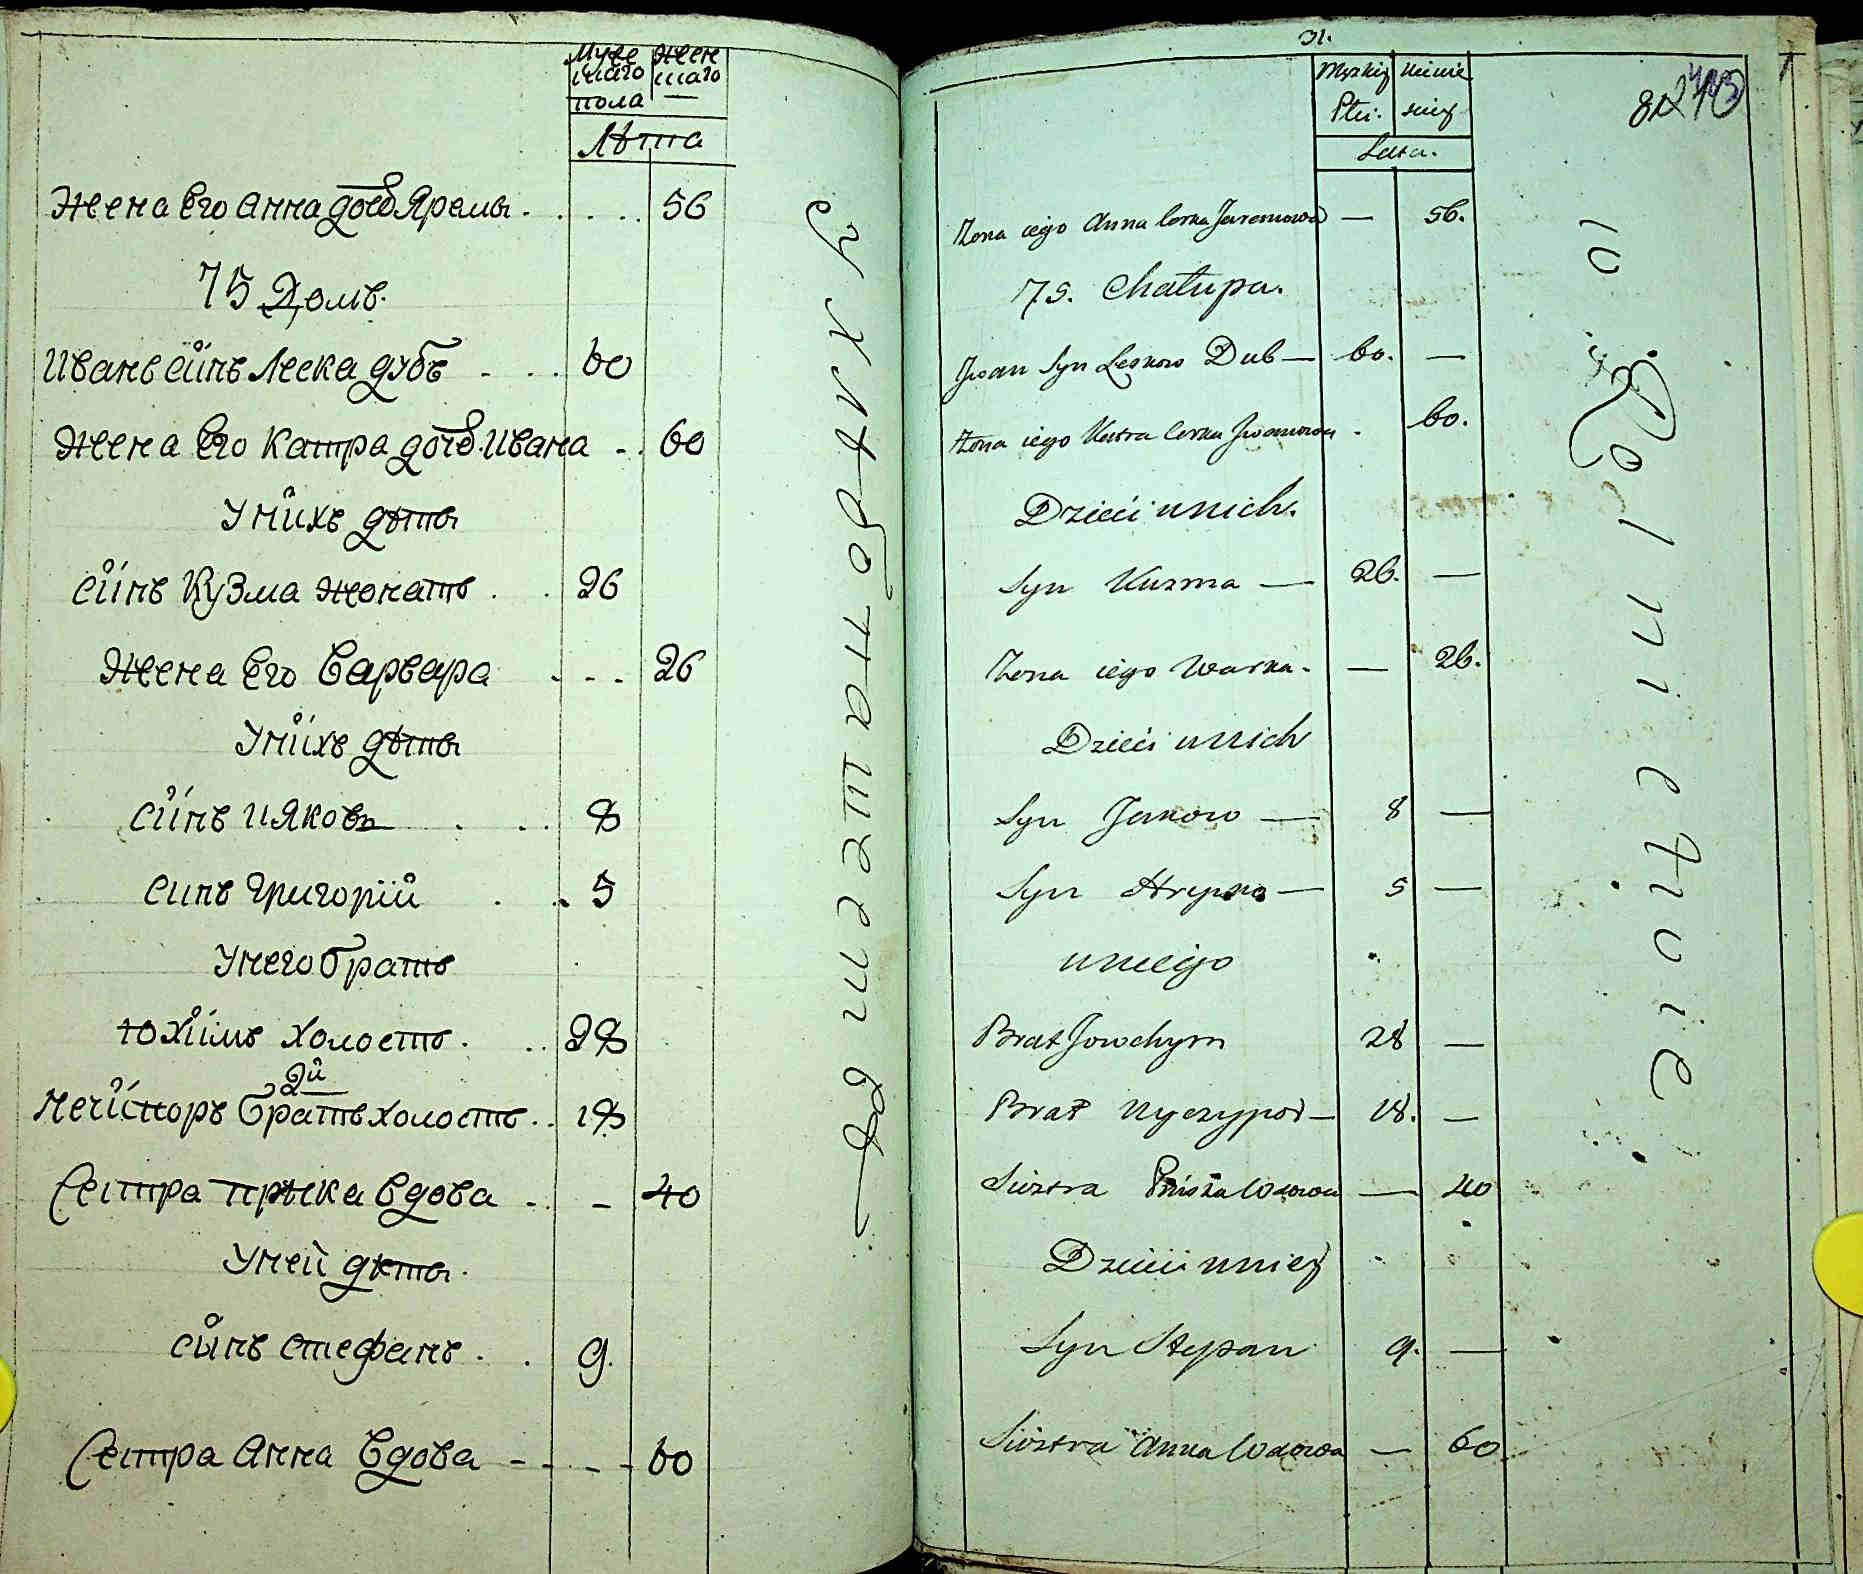 Муже Жен
скаго скаго
пола
Лѣта
Жена Его Анна дочь Яремы 56
75 Домъ.
Иванъ сынъ Леска дубъ 60
Жена Его Катра дочь Ивана 60
У нихъ дѣти
сынъ Кузма жонатъ 26
Жена Его Варвара 26
У нихъ дѣти
сынъ Ияковъ 8
синъ Григорій 5
У него братъ
Юхимъ холостъ 28
2й
Нечипоръ братъ холостъ 18
Сестра Прѣска вдова 40
У ней дѣти
сынъ Стефанъ 9.
Сестра Анна вдова 60
31.
Męzkiey Plci. Latа.
Zona iego Anna Corka Jaremowa — 56.
75. Chałupa.
Jwan Syn Leskow Dub — 60. —
Zona iego Katra Corka Jwanowa 60.
Dzieci u nich.
Syn Kuzma — 26. —
Zona iego Warka — 26.
Dzieci u nich
Syn Jakow — 8 —
Syn Hrycko — 5 —
u niego
Brat Jowchym 28 —
Brat Nyczypor — 18. —
Siostra Pryska Wdowa — 40
Dzieci u niey
Syn Stepan 9. —
Siostra Anna Wdowa — 60.